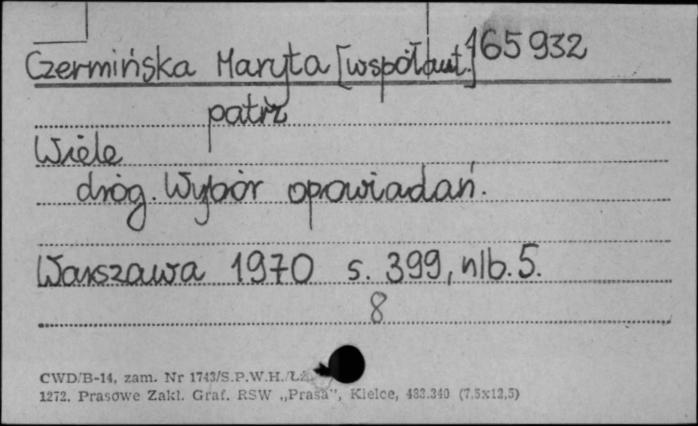 Czermińska Maryta [współaut.] 165932
patrz
Wiele
dróg. Wybór opowiadań.
Warszawa 1970 s. 399, nlb. 5.
8
CWD/B-14, zam. Nr 1743/S.P.W.H.
1272. Prasowe Zakł. Graf. RSW „Prasa”, Kielce, 483.340 (7,5x12,5)